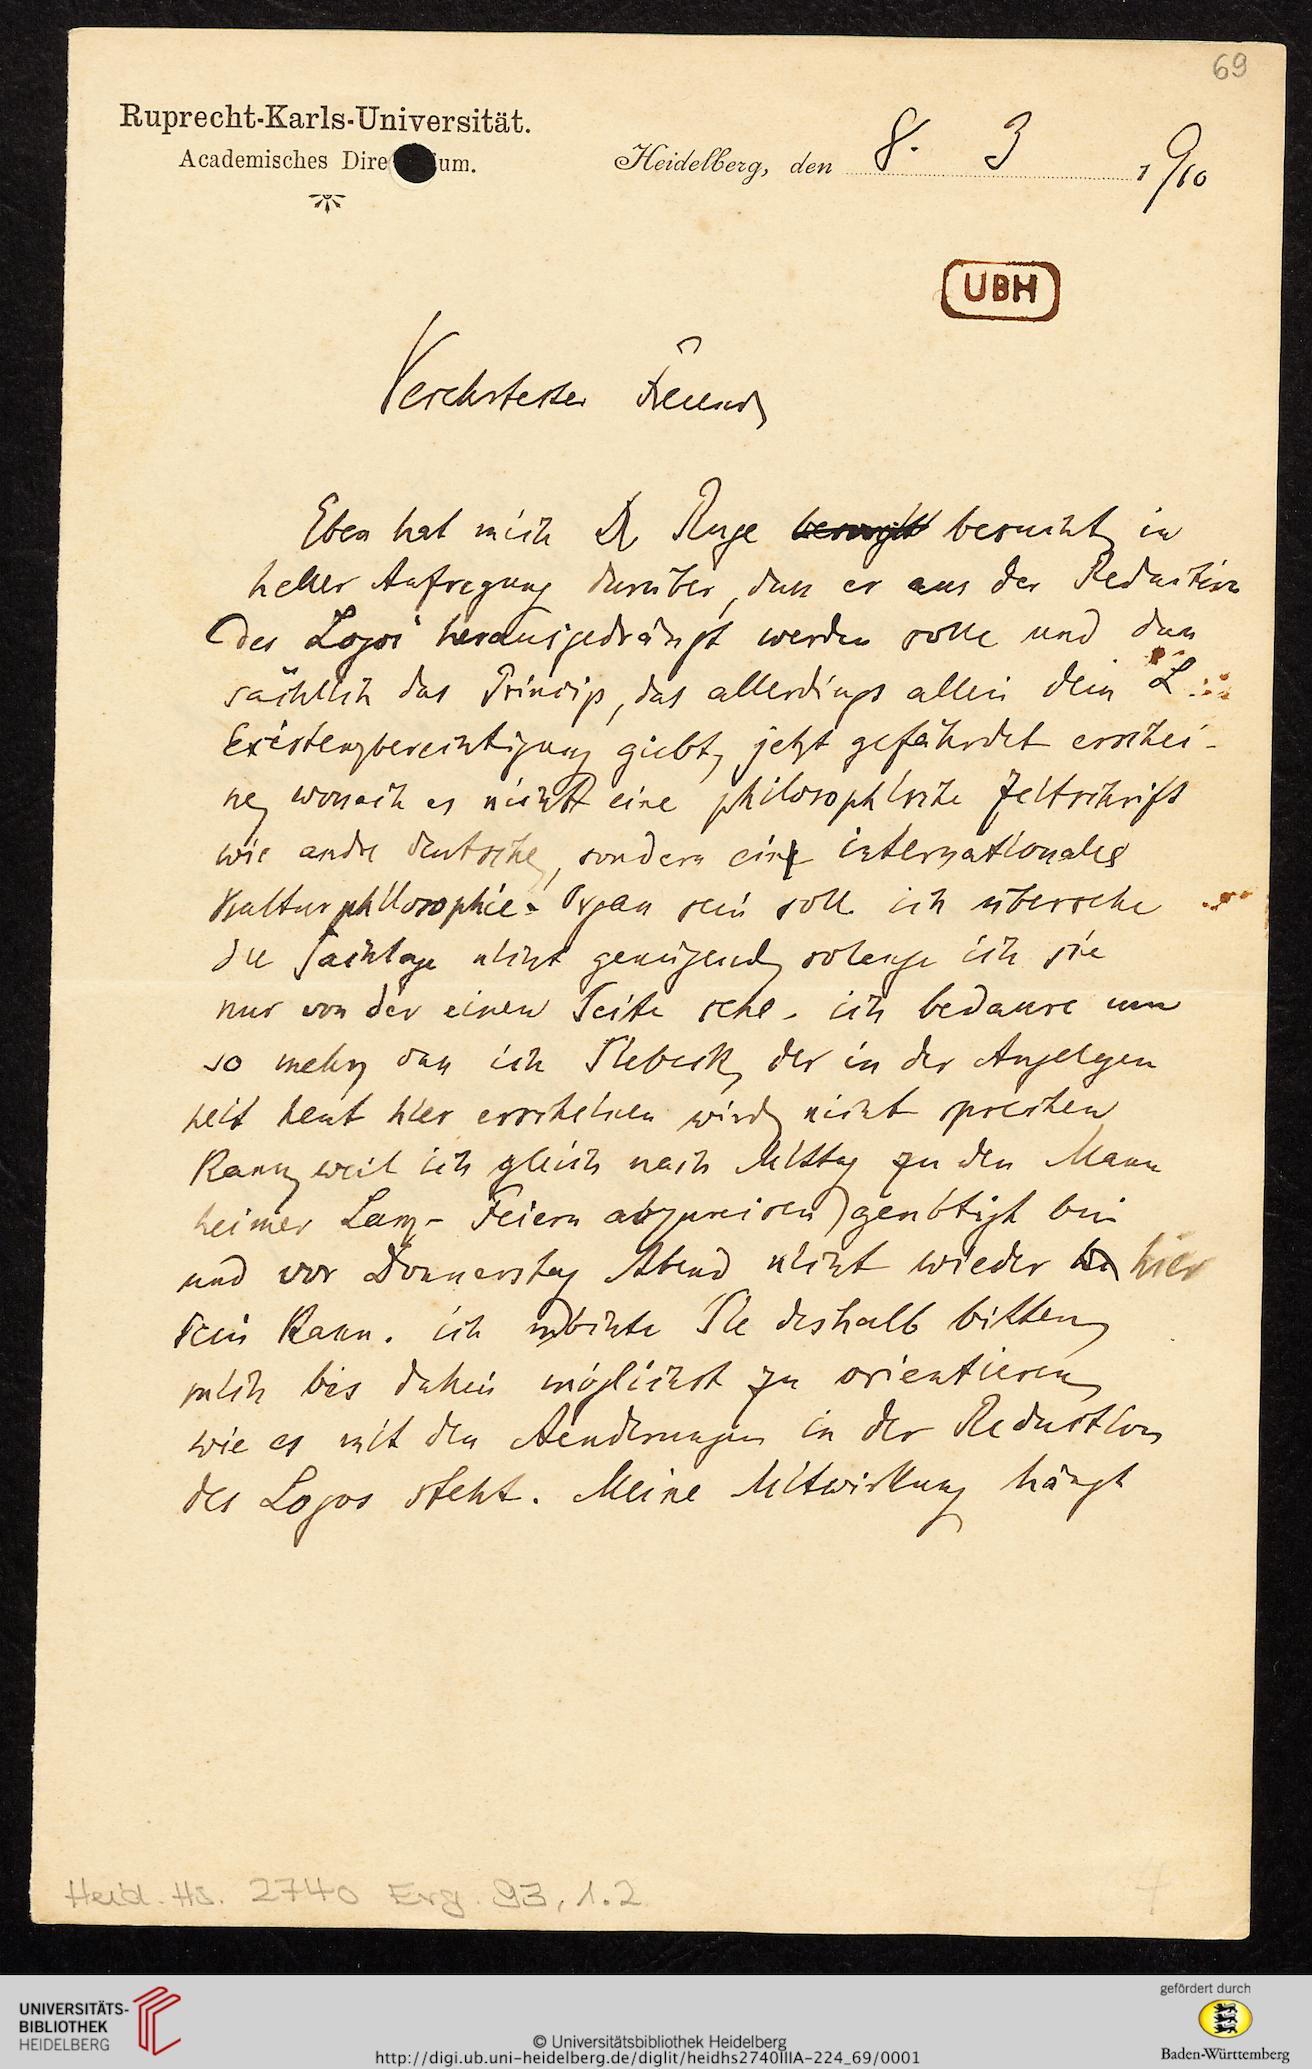 69
Ruprecht-Karls-Universität.
Academisches Dire ium.
Heidelberg, den 8. 3 1910
UBH
Verehrtester Freund,
Eben hat mich Dr Ruge besucht, in
heller Aufregung darüber, dass er aus der Redaction
des Logos herausgedrängt werden solle und dass
sächlich das Princip, das allerdings allein dem L
Existenzberechtigung giebt, jetzt gefährdet erschei-
ne, wonach es nicht eine philosophische Zeitschrift
wie andre deutsche, sondern ein internationales
Kulturphilosophie-Organ sein soll. ich übersehe
die Sachlage nicht genügend, solange ich sie
nur von der einen Seite sehe. ich bedaure um
so mehr, dass ich Siebeck, der in der Angelegen
heit heut hier erscheinen wird, nicht sprechen
kann, weil ich gleich nach Mittag zu den Mann
heimer Lanz-Feiern abzureisen genötigt bin
und vor Donnerstag Abend nicht wieder hier
sein kann. ich möchte Sie deshalb bitten,
mich bis dahin möglichst zu orientieren,
wie es mit den Aenderungen in der Redaction
des Logos steht. Meine Mitwirkung hängt
Heid. Hs. 2740 Erg. 93, 1.2
UNIVERSITÄTS-
BIBLIOTHEK
HEIDELBERG
© Universitätsbibliothek Heidelberg
http://digi.ub.uni-heidelberg.de/diglit/heidhs2740IIIA-224_69/0001
gefördert durch
Baden-Württemberg